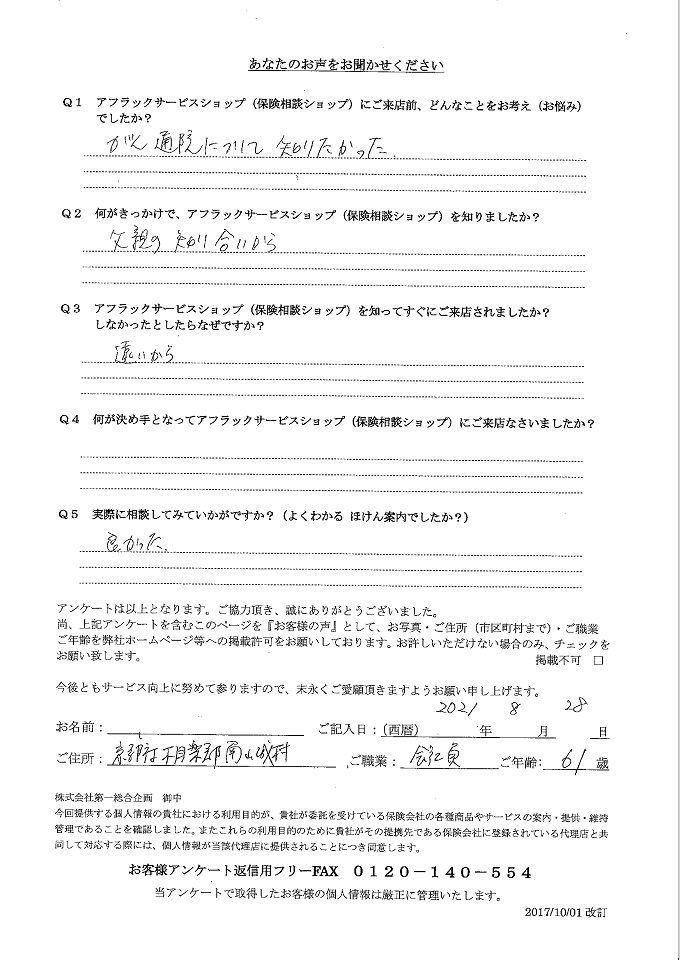 あなたのお声をお聞かせください
Q1 アフラックサービスショップ（保険相談ショップ）にご来店前、どんなことをお考え（お悩み）
でしたか？
がん通院について知りたかった.
Q2 何がきっかけで、アフラックサービスショップ（保険相談ショップ）を知りましたか？
父親の知り合いから
Q3 アフラックサービスショップ（保険相談ショップ）を知ってすぐにご来店されましたか？
しなかったとしたらなぜですか？
遠いから
Q4 何が決め手となってアフラックサービスショップ（保険相談ショップ）にご来店なさいましたか？
Q5 実際に相談してみていかがですか？（よくわかる ほけん案内でしたか？）
良かった.
アンケートは以上となります。ご協力頂き、誠にありがとうございました。
尚、上記アンケートを含むこのページを『お客様の声』として、お写真・ご住所（市区町村まで）・ご職業
ご年齢を弊社ホームページ等への掲載許可をお願いしております。お許しいただけない場合のみ、チェックを
お願い致します。 掲載不可 □
今後ともサービス向上に努めて参りますので、末永くご愛顧頂きますようお願い申し上げます。
お名前： ご記入日：（西暦） 2021 年 8 月 28 日
ご住所：京都府相楽郡南山城村 ご職業： 会社員 ご年齢： 61 歳
株式会社第一総合企画 御中
今回提供する個人情報の貴社における利用目的が、貴社が委託を受けている保険会社の各種商品やサービスの案内・提供・維持
管理であることを確認しました。またこれらの利用目的のために貴社がその提携先である保険会社に登録されている代理店と共
同して対応する際には、個人情報が当該代理店に提供されることにつき同意します。
お客様アンケート返信用フリーFAX 0120－140－554
当アンケートで取得したお客様の個人情報は厳正に管理いたします。
2017/10/01 改訂